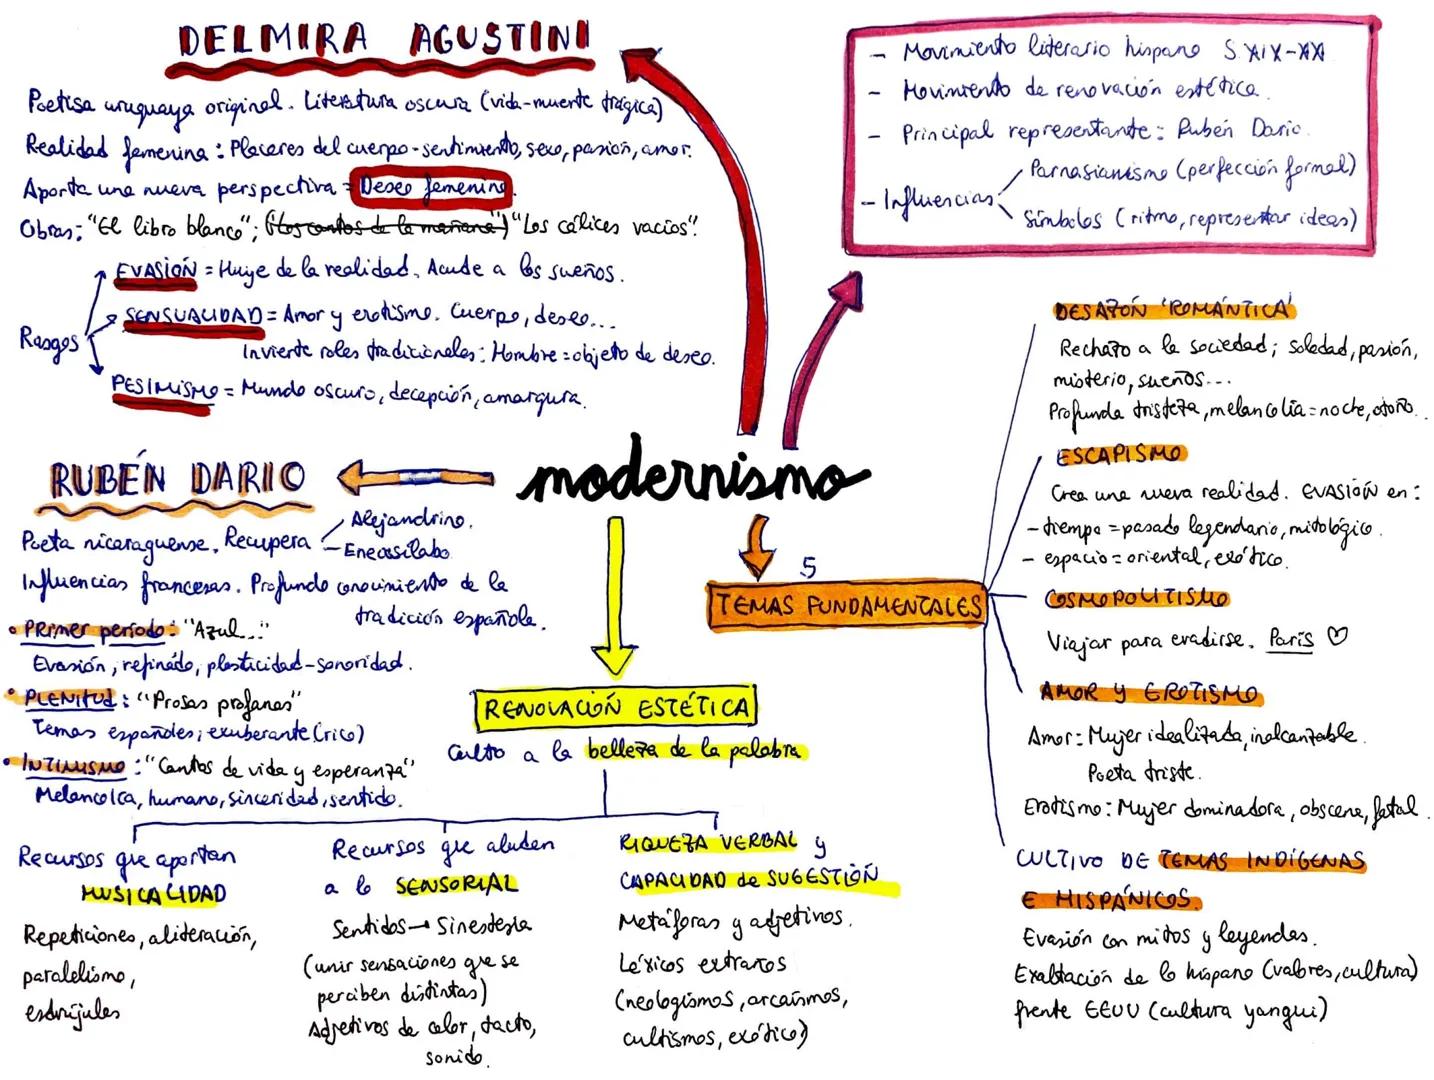 DELMIRA AGUSTINI
Poetisa uruguaya original. Literatura oscura (vida-muerte trágica)
Realidad femenina: Placeres del cuerpo-sentimiento, sexo, pasión, amor.
Aporta una nueva perspectiva = Deseo femenino.
Obras: "El libro blanco"; ("Los cantos de la mañana") "Los cálices vacíos".
Rasgos
EVASIÓN = Huye de la realidad. Acude a los sueños.
SENSUALIDAD = Amor y erotismo. Cuerpo, deseo...
Invierte roles tradicionales: Hombre = objeto de deseo.
PESIMISMO = Mundo oscuro, decepción, amargura.
- Movimiento literario hispano S. XIX-XX
- Movimiento de renovación estética.
- Principal representante: Rubén Darío.
- Influencias
Parnasianismo (perfección formal)
Símbolos (ritmo, representar ideas)
modernismo
RUBÉN DARIO
Poeta nicaraguense. Recupera
Alejandrino.
- Eneasílabo
Influencias francesas. Profundo conocimiento de la
tradición española.
• PRimer período: "Azul..."
Evasión, refinado, plasticidad-sonoridad.
• PLENITUD: "Prosas profanas"
Temas españoles; exuberante (rico)
• INTIMISMO: "Cantos de vida y esperanza"
Melancolca, humano, sinceridad, sentido.
RENOVACIÓN ESTÉTICA
Culto a la belleza de la palabra
Recursos que aportan
MUSICALIDAD
Repeticiones, aliteración,
paralelismo,
esdrújulas
Recursos que aluden
a lo SENSORIAL
Sentidos → Sinestesia
(unir sensaciones que se
perciben distintas)
Adjetivos de color, tacto,
sonido.
RIQUEZA VERBAL y
CAPACIDAD de SUGESTIÓN
Metáforas y adjetivos.
Léxicos extraños
(neologismos, arcaísmos,
cultismos, exótico)
5
TEMAS FUNDAMENTALES
DESAZÓN 'ROMÁNTICA'
Rechazo a la sociedad; soledad, pasión,
misterio, sueños...
Profunda tristeza, melancolía = noche, otoño.
ESCAPISMO
Crea una nueva realidad. EVASIÓN en:
- tiempo = pasado legendario, mitológico.
- espacio = oriental, exótico.
COSMOPOLITISMO
Viajar para evadirse. París ♡
AMOR y EROTISMO
Amor: Mujer idealizada, inalcanzable.
Poeta triste.
Erotismo: Mujer dominadora, obscena, fatal.
CULTIVO DE TEMAS INDÍGENAS
E HISPÁNICOS.
Evasión con mitos y leyendas.
Exaltación de lo hispano (valores, cultura)
frente EEUU (cultura yangui)